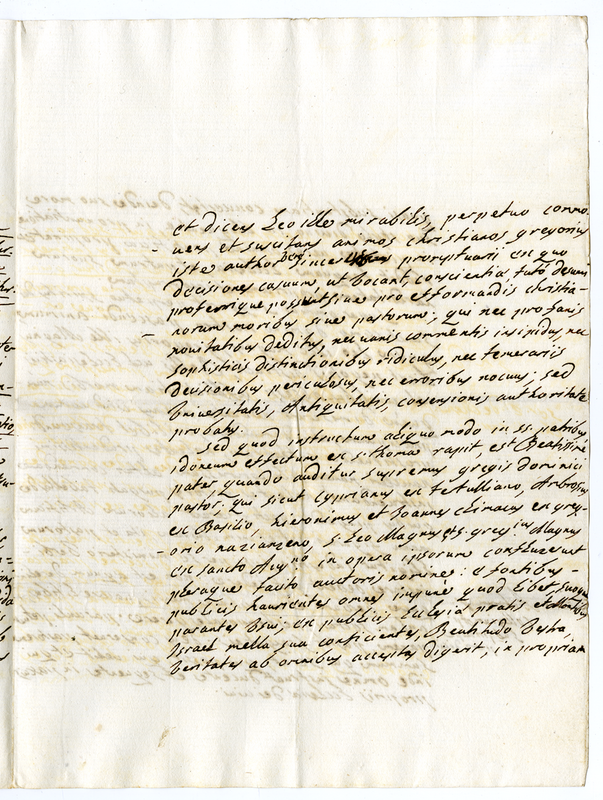 et dices Leo ille mirabilis, perpetuo commo-
uens et suscitans animos christianos gregorius
iste author sincer promptuarii ex quo
decisiones casuum, ut bocant, conscientiæ tutò desumi
proferrique possint siue pro efformandis christia-
norum moribus siue pastorum; qui nec profanis
nouitatibus deditus, nec uanis commentis insipidus, nec
sophisticis distinctionibus ridiculus, nec temerariis
decisionibus periculosus, nec erroribus nocuus; sed
Vniuersitatis, Antiquitatis, consensionis authoritate
probatus.
sed quod instructum aliquo modo in ss. patribus
idoneum effectum ex s. thoma rapit, est Beatissime
pater quando auditur supremus gregis dominici
pastor, qui sicut Cyprianus ex tetulliano, Ambrosius
ex Basilio, hieronimus et Joannes climacus ex greg-
orio nazianzeno, s. Leo Magnus et s. greg.ius Magnus
ex sancto Aug.no in opera ipsorum confluxerunt
pleraque tacto autoris nomine: è fontibus
publicis haurientes omnes impune quod libet, suoque
parantes Vsui; ex publicis Ecclesiæ pratis et
Israel mella sua conficientes, Beatitudo Vestra,
Veritates ab omnibus acceptas digerit, in propriam